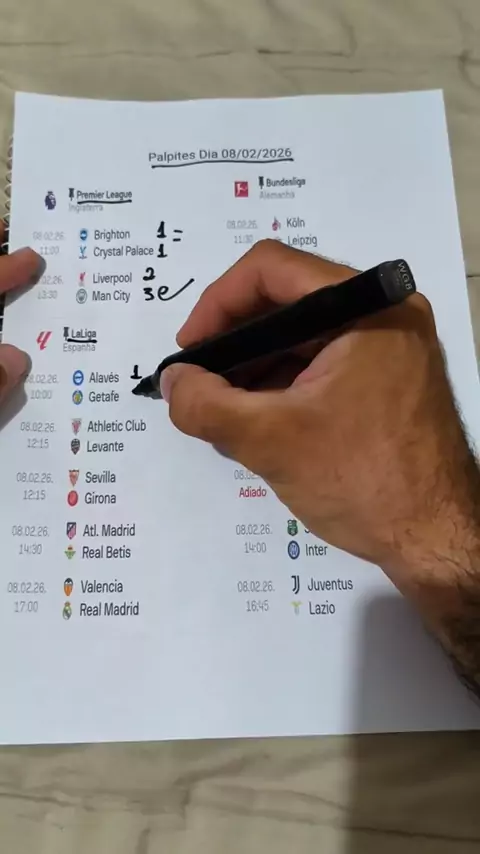 Palpites Dia 08/02/2026
Premier League
Inglaterra
08.02.26. Brighton 1 =
11:00 Crystal Palace 1
02.26. Liverpool 2
13:30 Man City 3 e ✓
LaLiga
Espanha
08.02.26. Alavés 1
10:00 Getafe
08.02.26. Athletic Club
12:15 Levante
08.02.26. Sevilla
12:15 Girona
08.02.26. Atl. Madrid
14:30 Real Betis
08.02.26. Valencia
17:00 Real Madrid
Bundesliga
Alemanha
08.02.26. Köln
11:30 Leipzig
08.02
Adiado
08.02.26.
14:00 Inter
08.02.26. Juventus
16:45 Lazio
WGB